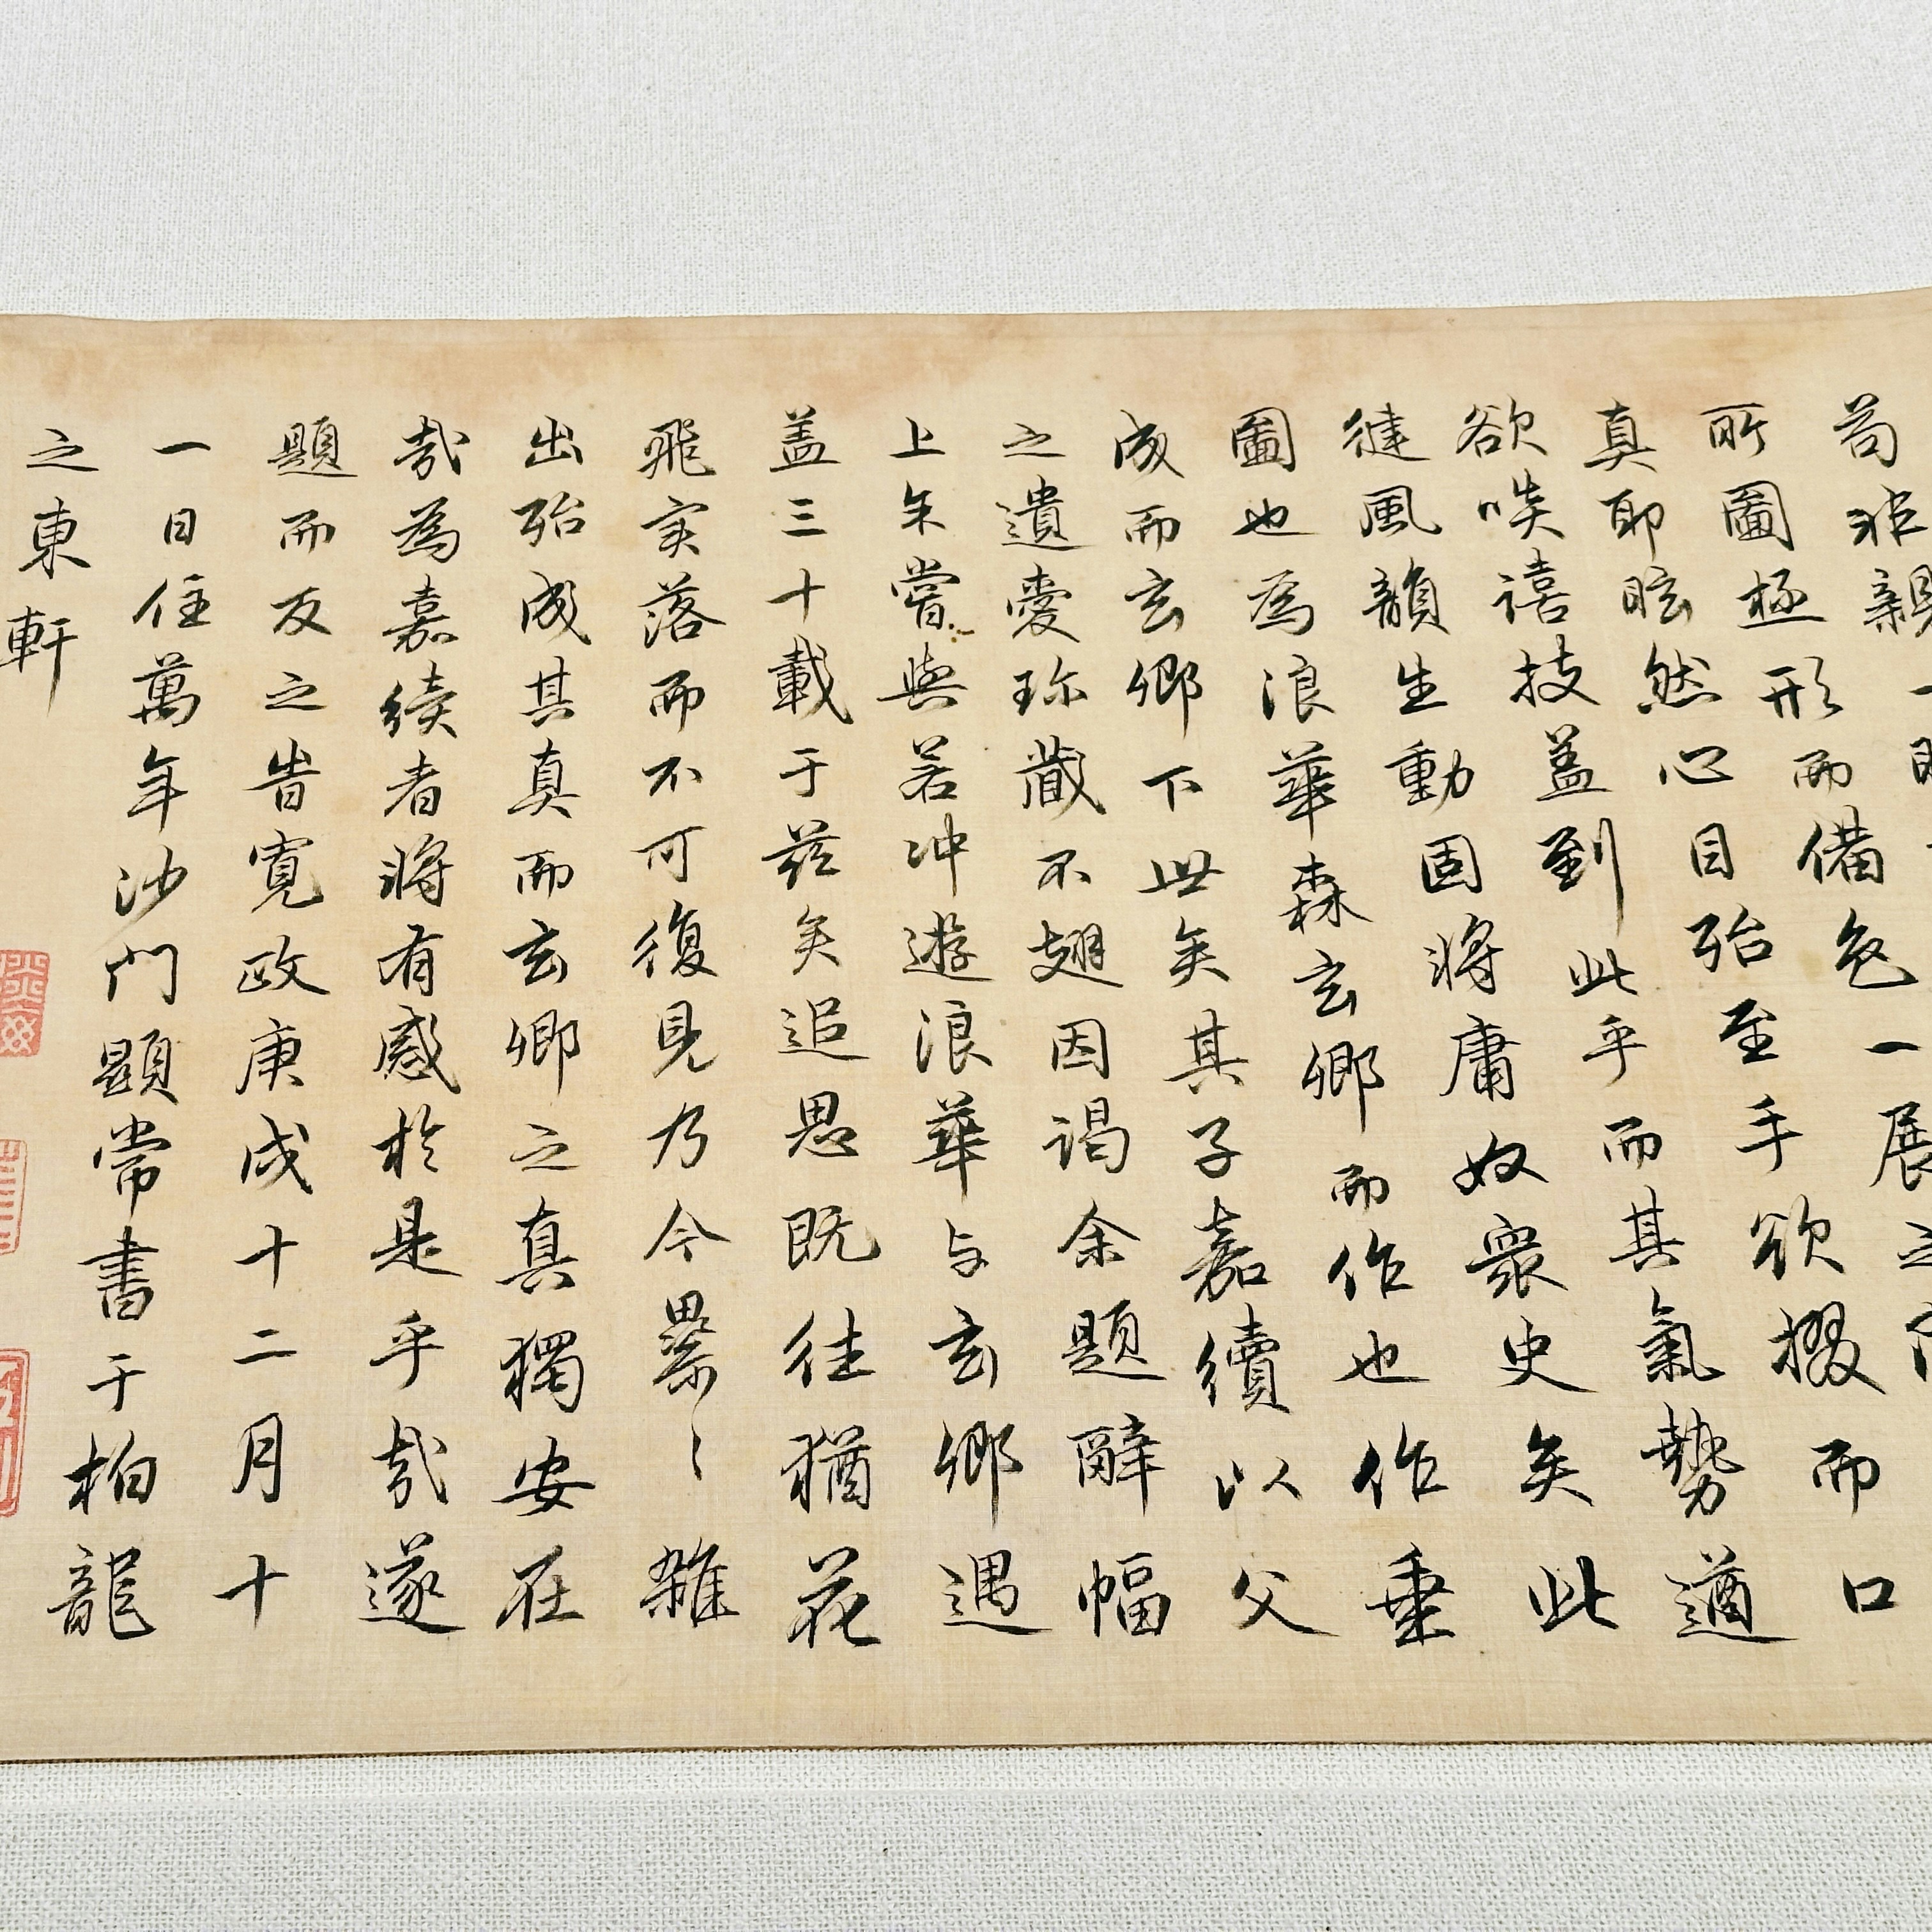 苟非親一
所圖極形而備色一展之
真耶眩然心目殆至手欲掇而口
欲啖譆技盖到此乎而其氣勢遒
徤風韻生動固將庸奴衆史矣此
圖也為浪華森玄卿而作也作垂
成而玄卿下世矣其子嘉續以父
之遺愛珍藏不翅因謁余題辭幅
上余嘗與若冲遊浪華与玄卿遇
盖三十載于茲矣追思既往猶花
飛実落而不可復見乃今纍〻雜
出殆成其真而玄卿之真獨安在
哉為嘉続者將有感於是乎哉遂
題而反之旹寛政庚戌十二月十
一日住萬年沙門顕常書于柏龍
之東軒